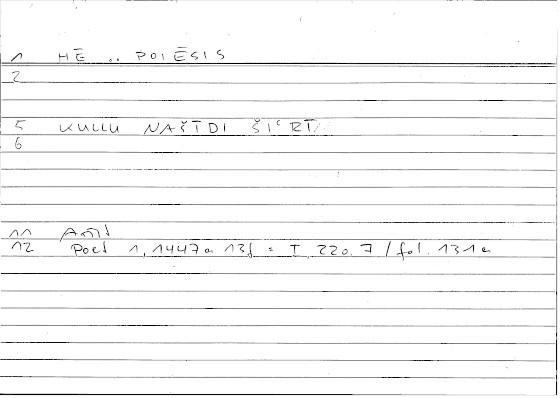 1 HĒ .. POIĒSIS
2
5 KULLU NAŠĪDI ŠIʿRĪ
6
11
12 Poet 1, 1447a 13f = T 220.7 / fol. 131a